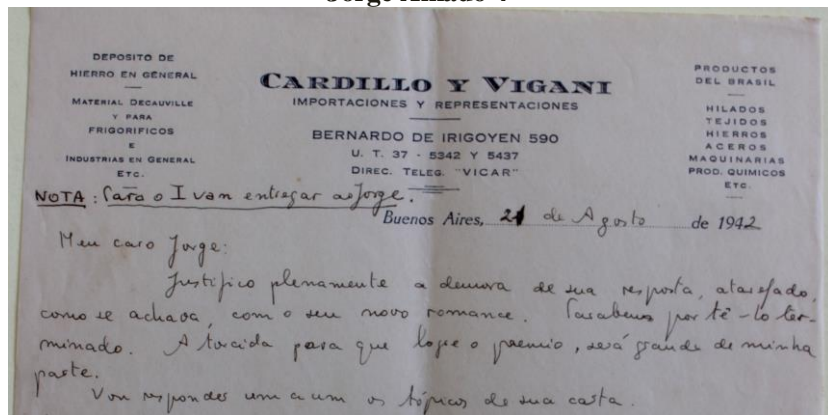 Jorge Amado
DEPOSITO DE
HIERRO EN GENERAL
MATERIAL DECAUVILLE
Y PARA
FRIGORIFICOS
E
INDUSTRIAS EN GENERAL
ETC.
CARDILLO Y VIGANI
IMPORTACIONES Y REPRESENTACIONES
BERNARDO DE IRIGOYEN 590
U. T. 37 - 5342 Y 5437
DIREC. TELEG. "VICAR"
PRODUCTOS
DEL BRASIL
HILADOS
TEJIDOS
HIERROS
ACEROS
MAQUINARIAS
PROD. QUIMICOS
ETC.
NOTA: Para o Ivan entregar ao Jorge.
Buenos Aires, 21 de Agosto de 1942
Meu caro Jorge:
Justifico plenamente a demora de sua resposta, atarefado,
como se achava, com o seu novo romance. Parabens por tê-lo ter-
minado. A torcida para que logre o premio, será grande de minha
parte.
Vou responder um a um os tópicos de sua carta.